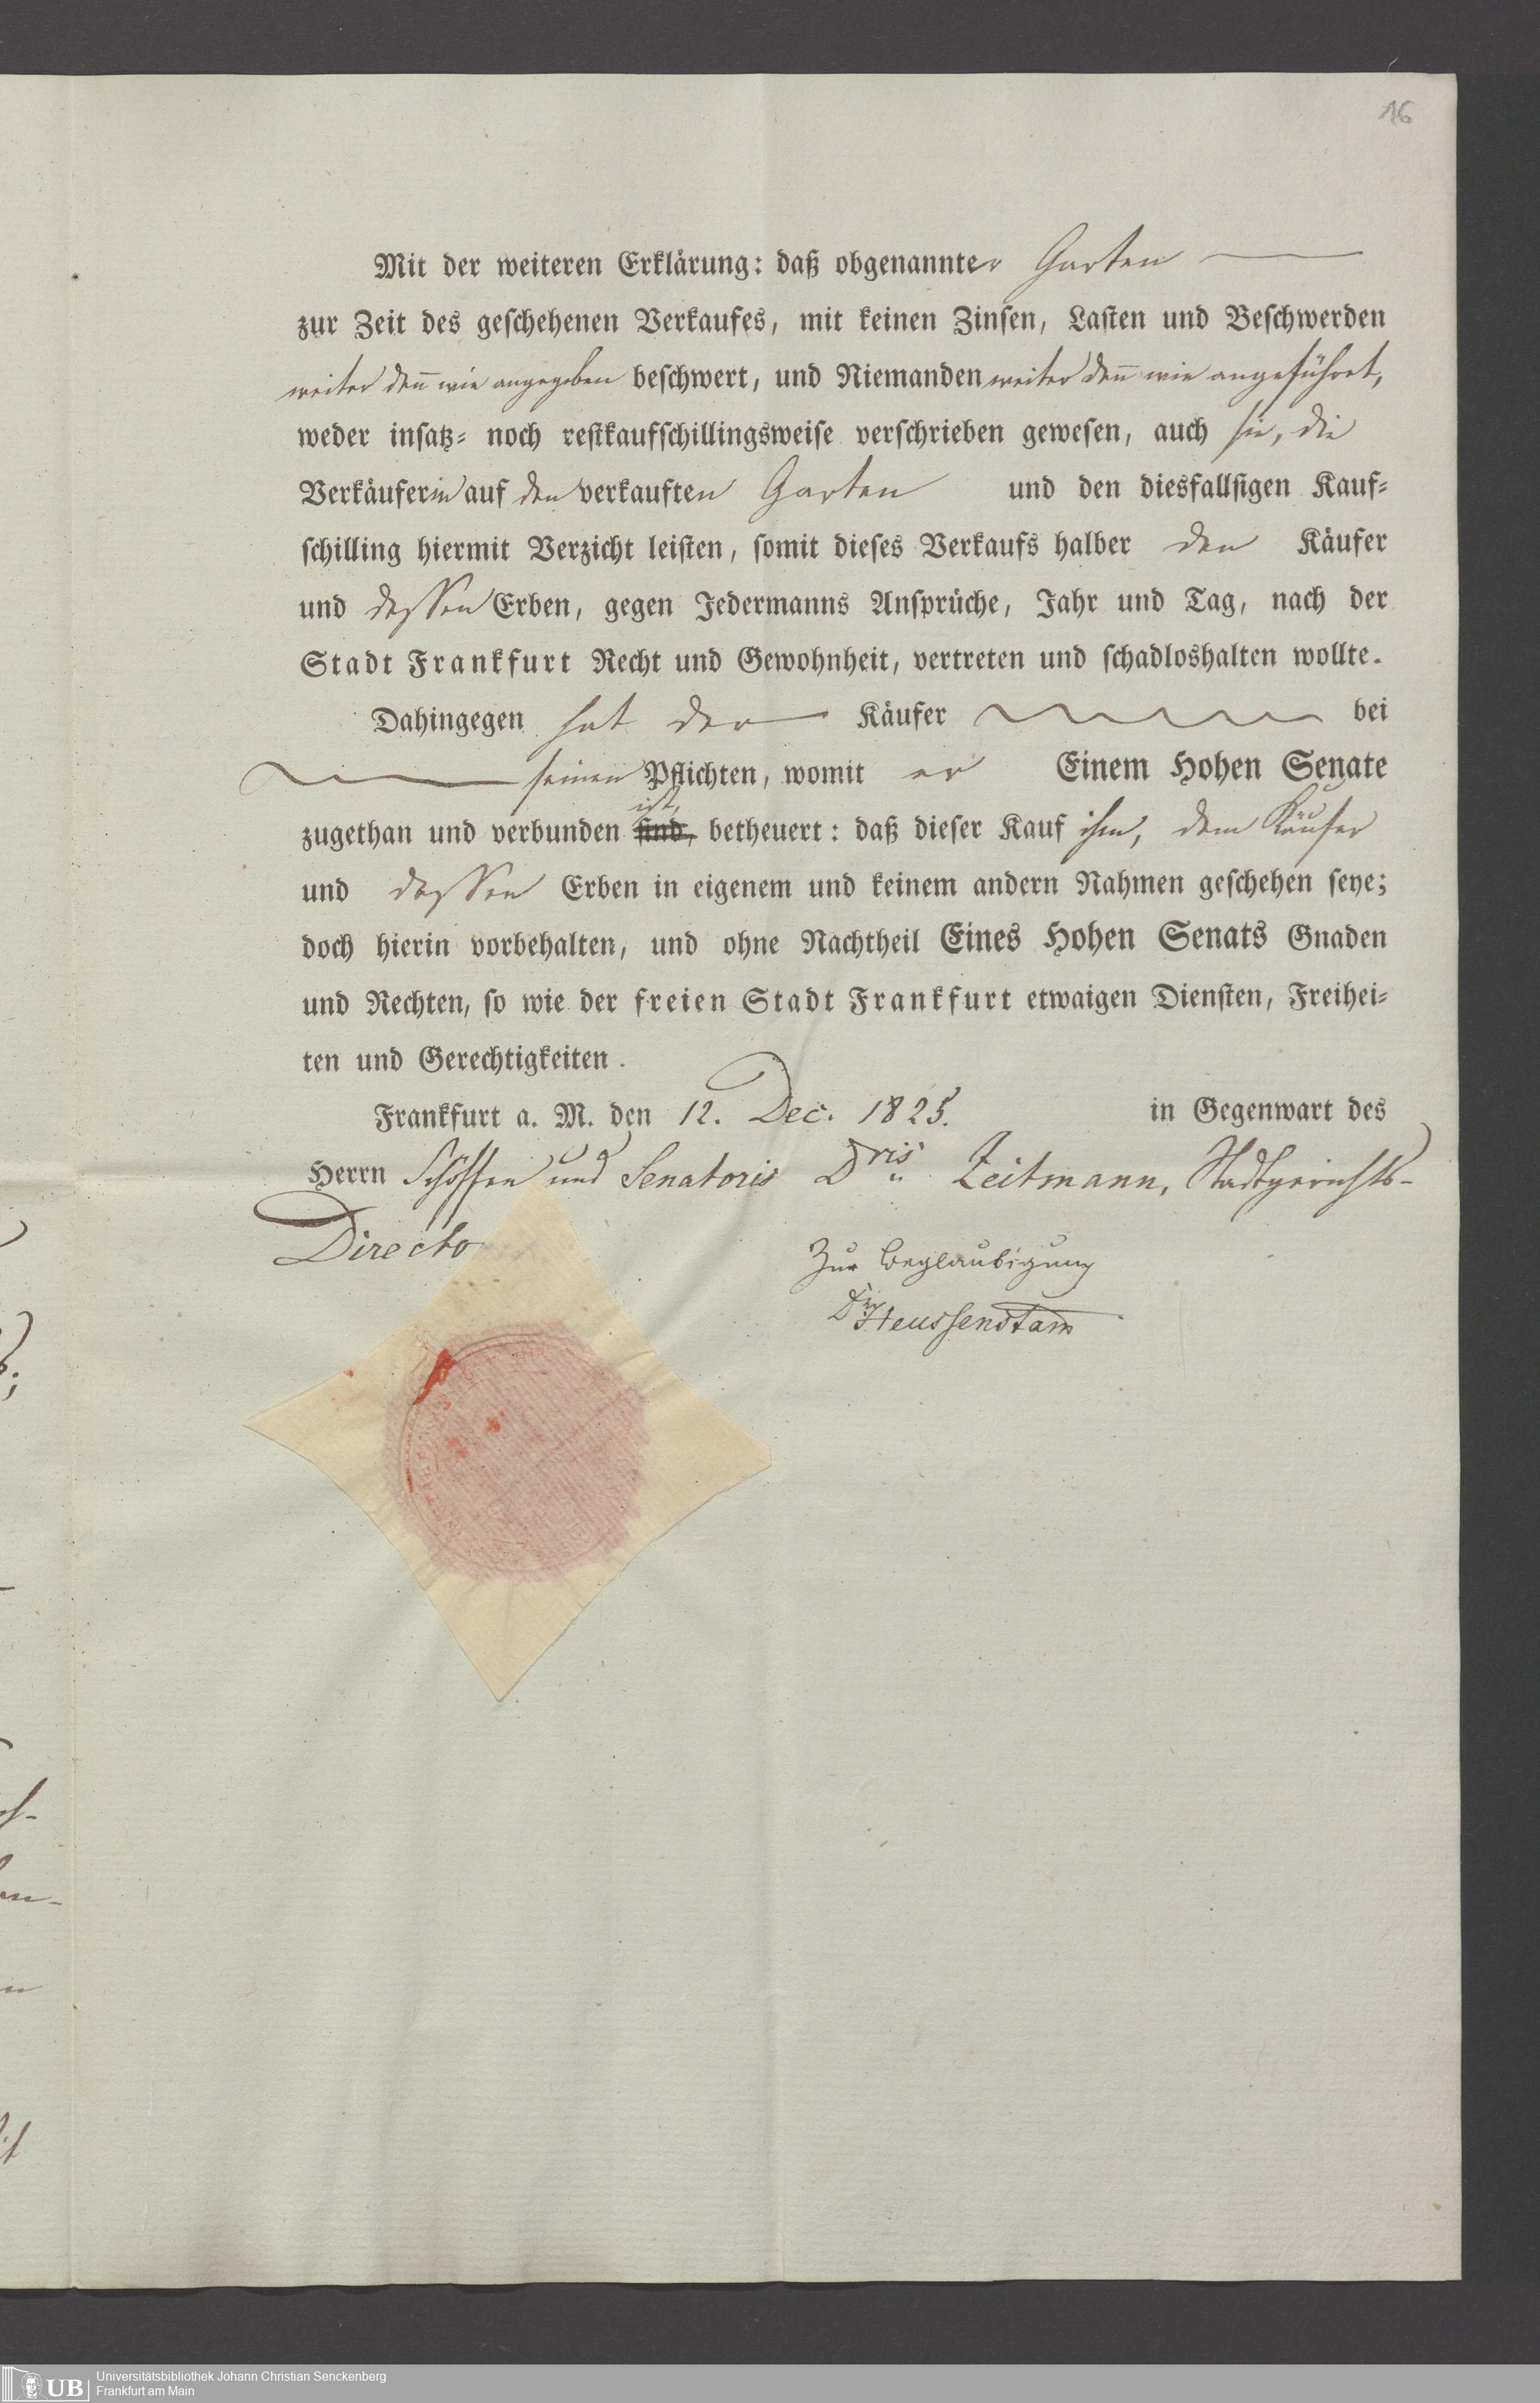 16
Mit der weiteren Erklärung: daß obgenannter Garten
zur Zeit des geschehenen Verkaufes, mit keinen Zinsen, Lasten und Beschwerden
weiter den̄ wie angegeben beschwert, und Niemanden weiter den̄ wie angeführet,
weder insatz= noch restkaufschillingsweise verschrieben gewesen, auch sie, die
Verkäuferin auf den verkauften Garten und den diesfallsigen Kauf=
schilling hiermit Verzicht leisten, somit dieses Verkaufs halber den Käufer
und dessen Erben, gegen Jedermanns Ansprüche, Jahr und Tag, nach der
Stadt Frankfurt Recht und Gewohnheit, vertreten und schadloshalten wollte.
Dahingegen hat der Käufer bei
seinen Pflichten, womit er Einem Hohen Senate
zugethan und verbunden ist, sind, betheuert: daß dieser Kauf ihm, dem Käufer
und dessen Erben in eigenem und keinem andern Nahmen geschehen seye;
doch hierin vorbehalten, und ohne Nachtheil Eines Hohen Senats Gnaden
und Rechten, so wie der freien Stadt Frankfurt etwaigen Diensten, Freihei=
ten und Gerechtigkeiten.
Frankfurt a. M. den 12. Dec. 1825. in Gegenwart des
Herrn Schöffen und Senatoris Dris Zeitmann, Stadtgerichts-
Directo
Zur Beglaubigung
Dr Heussenstam̄
UB
Universitätsbibliothek Johann Christian Senckenberg
Frankfurt am Main